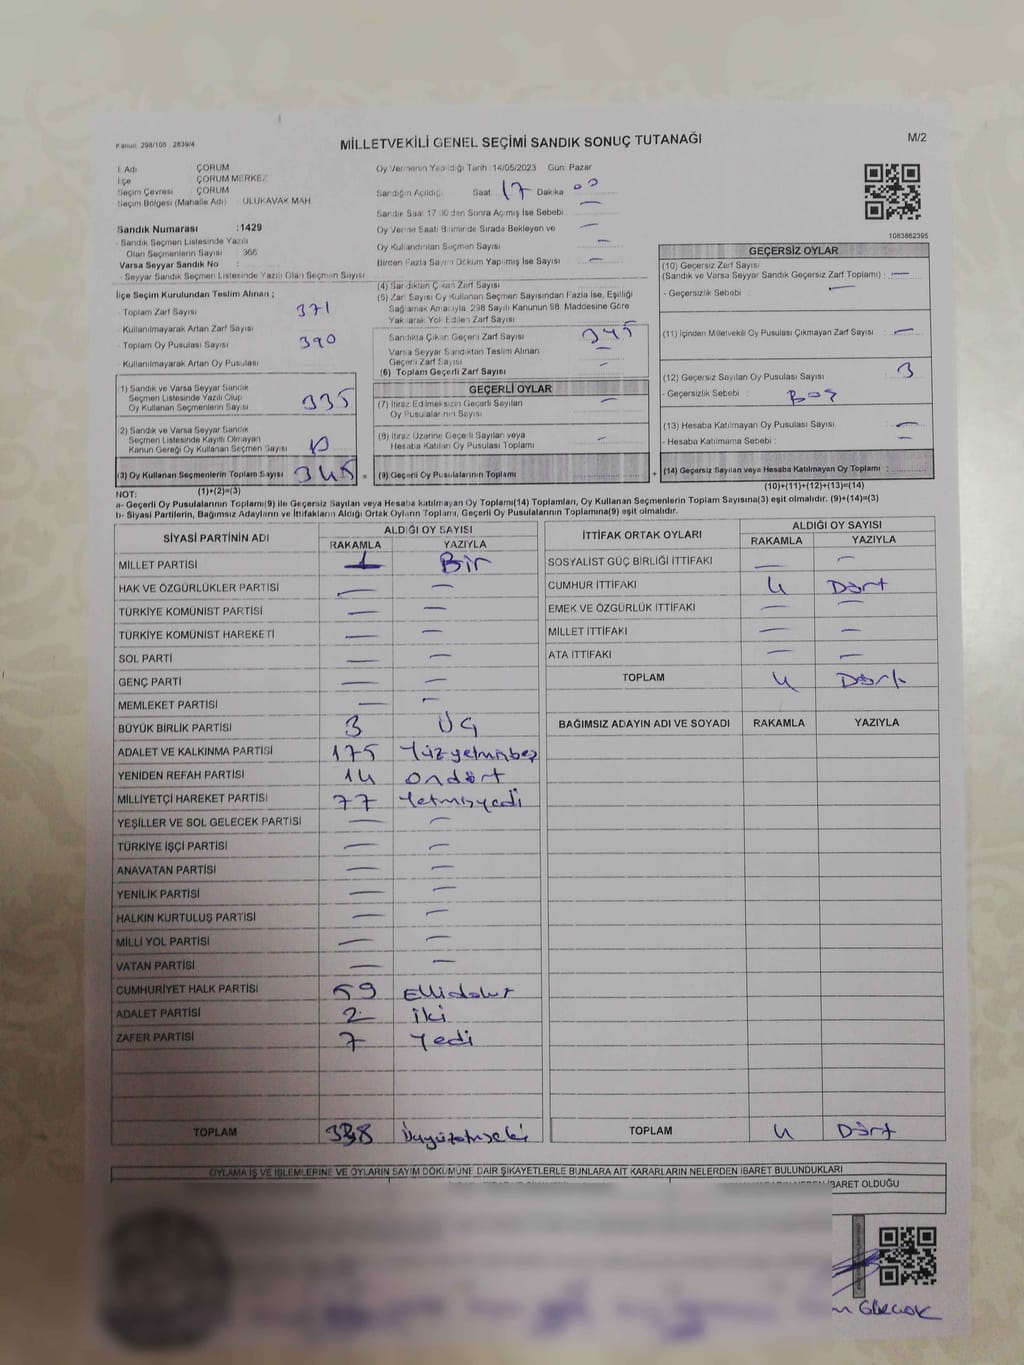 Kanun: 298/105 , 2839/4
MİLLETVEKİLİ GENEL SEÇİMİ SANDIK SONUÇ TUTANAĞI
M/2
İl Adı ÇORUM
İlçe ÇORUM MERKEZ
Seçim Çevresi ÇORUM
Seçim Bölgesi (Mahalle Adı) ULUKAVAK MAH.
Sandık Numarası :1429
- Sandık Seçmen Listesinde Yazılı
Olan Seçmenlerin Sayısı 366
Varsa Seyyar Sandık No :
- Seyyar Sandık Seçmen Listesinde Yazılı Olan Seçmen Sayısı
İlçe Seçim Kurulundan Teslim Alınan ;
- Toplam Zarf Sayısı 371
- Kullanılmayarak Artan Zarf Sayısı
- Toplam Oy Pusulası Sayısı 390
- Kullanılmayarak Artan Oy Pusulası
1) Sandık ve Varsa Seyyar Sandık
Seçmen Listesinde Yazılı Olup
Oy Kullanan Seçmenlerin Sayısı 335
2) Sandık ve Varsa Seyyar Sandık
Seçmen Listesinde Kayıtlı Olmayan
Kanun Gereği Oy Kullanan Seçmen Sayısı
(3) Oy Kullanan Seçmenlerin Toplam Sayısı 345 =
(1)+(2)=(3)
Oy Vermenin Yapıldığı Tarih :14/05/2023 Gün: Pazar
Sandığın Açıldığı Saat 17 Dakika 00
Sandık Saat 17:00'den Sonra Açılmış İse Sebebi : —
Oy Verme Saati Bitiminde Sırada Bekleyen ve —
Oy Kullandırılan Seçmen Sayısı —
Birden Fazla Sayım Döküm Yapılmış İse Sayısı —
(4) Sandıktan Çıkan Zarf Sayısı
(5) Zarf Sayısı Oy Kullanan Seçmen Sayısından Fazla İse, Eşitliği
Sağlamak Amacıyla 298 Sayılı Kanunun 98. Maddesine Göre
Yakılarak Yok Edilen Zarf Sayısı
Sandıkta Çıkan Geçerli Zarf Sayısı 345
Varsa Seyyar Sandıktan Teslim Alınan
Geçerli Zarf Sayısı —
(6) Toplam Geçerli Zarf Sayısı —
GEÇERLİ OYLAR
(7) İtiraz Edilmeksizin Geçerli Sayılan
Oy Pusulalarının Sayısı —
(8) İtiraz Üzerine Geçerli Sayılan veya
Hesaba Katılan Oy Pusulaları Toplamı —
(9) Geçerli Oy Pusulalarının Toplamı +
1083862395
GEÇERSİZ OYLAR
(10) Geçersiz Zarf Sayısı
(Sandık ve Varsa Seyyar Sandık Geçersiz Zarf Toplamı) : —
- Geçersizlik Sebebi : —
(11) İçinden Milletvekili Oy Pusulası Çıkmayan Zarf Sayısı —
(12) Geçersiz Sayılan Oy Pusulası Sayısı 3
- Geçersizlik Sebebi : Boş
(13) Hesaba Katılmayan Oy Pusulası Sayısı —
- Hesaba Katılmama Sebebi : —
(14) Geçersiz Sayılan veya Hesaba Katılmayan Oy Toplamı :
(10)+(11)+(12)+(13)=(14)
NOT:
a- Geçerli Oy Pusulalarının Toplamı(9) ile Geçersiz Sayılan veya Hesaba katılmayan Oy Toplamı(14) Toplamları, Oy Kullanan Seçmenlerin Toplam Sayısına(3) eşit olmalıdır. (9)+(14)=(3)
b- Siyasi Partilerin, Bağımsız Adayların ve İttifakların Aldığı Ortak Oyların Toplamı, Geçerli Oy Pusulalarının Toplamına(9) eşit olmalıdır.
SİYASİ PARTİNİN ADI ALDIĞI OY SAYISI
RAKAMLA YAZIYLA
MİLLET PARTİSİ 1 Bir
HAK VE ÖZGÜRLÜKLER PARTİSİ — —
TÜRKİYE KOMÜNİST PARTİSİ — —
TÜRKİYE KOMÜNİST HAREKETİ — —
SOL PARTİ — —
GENÇ PARTİ — —
MEMLEKET PARTİSİ — —
BÜYÜK BİRLİK PARTİSİ 3 ÜÇ
ADALET VE KALKINMA PARTİSİ 175 Yüzyetmişbeş
YENİDEN REFAH PARTİSİ 14 ondört
MİLLİYETÇİ HAREKET PARTİSİ 77 Yetmişyedi
YEŞİLLER VE SOL GELECEK PARTİSİ — —
TÜRKİYE İŞÇİ PARTİSİ — —
ANAVATAN PARTİSİ — —
YENİLİK PARTİSİ — —
HALKIN KURTULUŞ PARTİSİ — —
MİLLİ YOL PARTİSİ — —
VATAN PARTİSİ — —
CUMHURİYET HALK PARTİSİ 59
ADALET PARTİSİ 2 iki
ZAFER PARTİSİ 7 Yedi
TOPLAM 338
İTTİFAK ORTAK OYLARI ALDIĞI OY SAYISI
RAKAMLA YAZIYLA
SOSYALİST GÜÇ BİRLİĞİ İTTİFAKI — —
CUMHUR İTTİFAKI 4 Dört
EMEK VE ÖZGÜRLÜK İTTİFAKI — —
MİLLET İTTİFAKI — —
ATA İTTİFAKI — —
TOPLAM 4 Dört
BAĞIMSIZ ADAYIN ADI VE SOYADI RAKAMLA YAZIYLA
TOPLAM 4 Dört
OYLAMA İŞ VE İŞLEMLERİNE VE OYLARIN SAYIM DÖKÜMÜNE DAİR ŞİKAYETLERLE BUNLARA AİT KARARLARIN NELERDEN İBARET BULUNDUKLARI
İBARET OLDUĞU